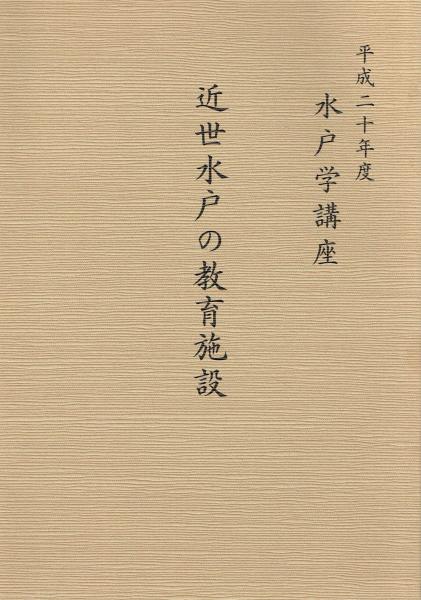 平成二十年度
水戸学講座
近世水戸の教育施設